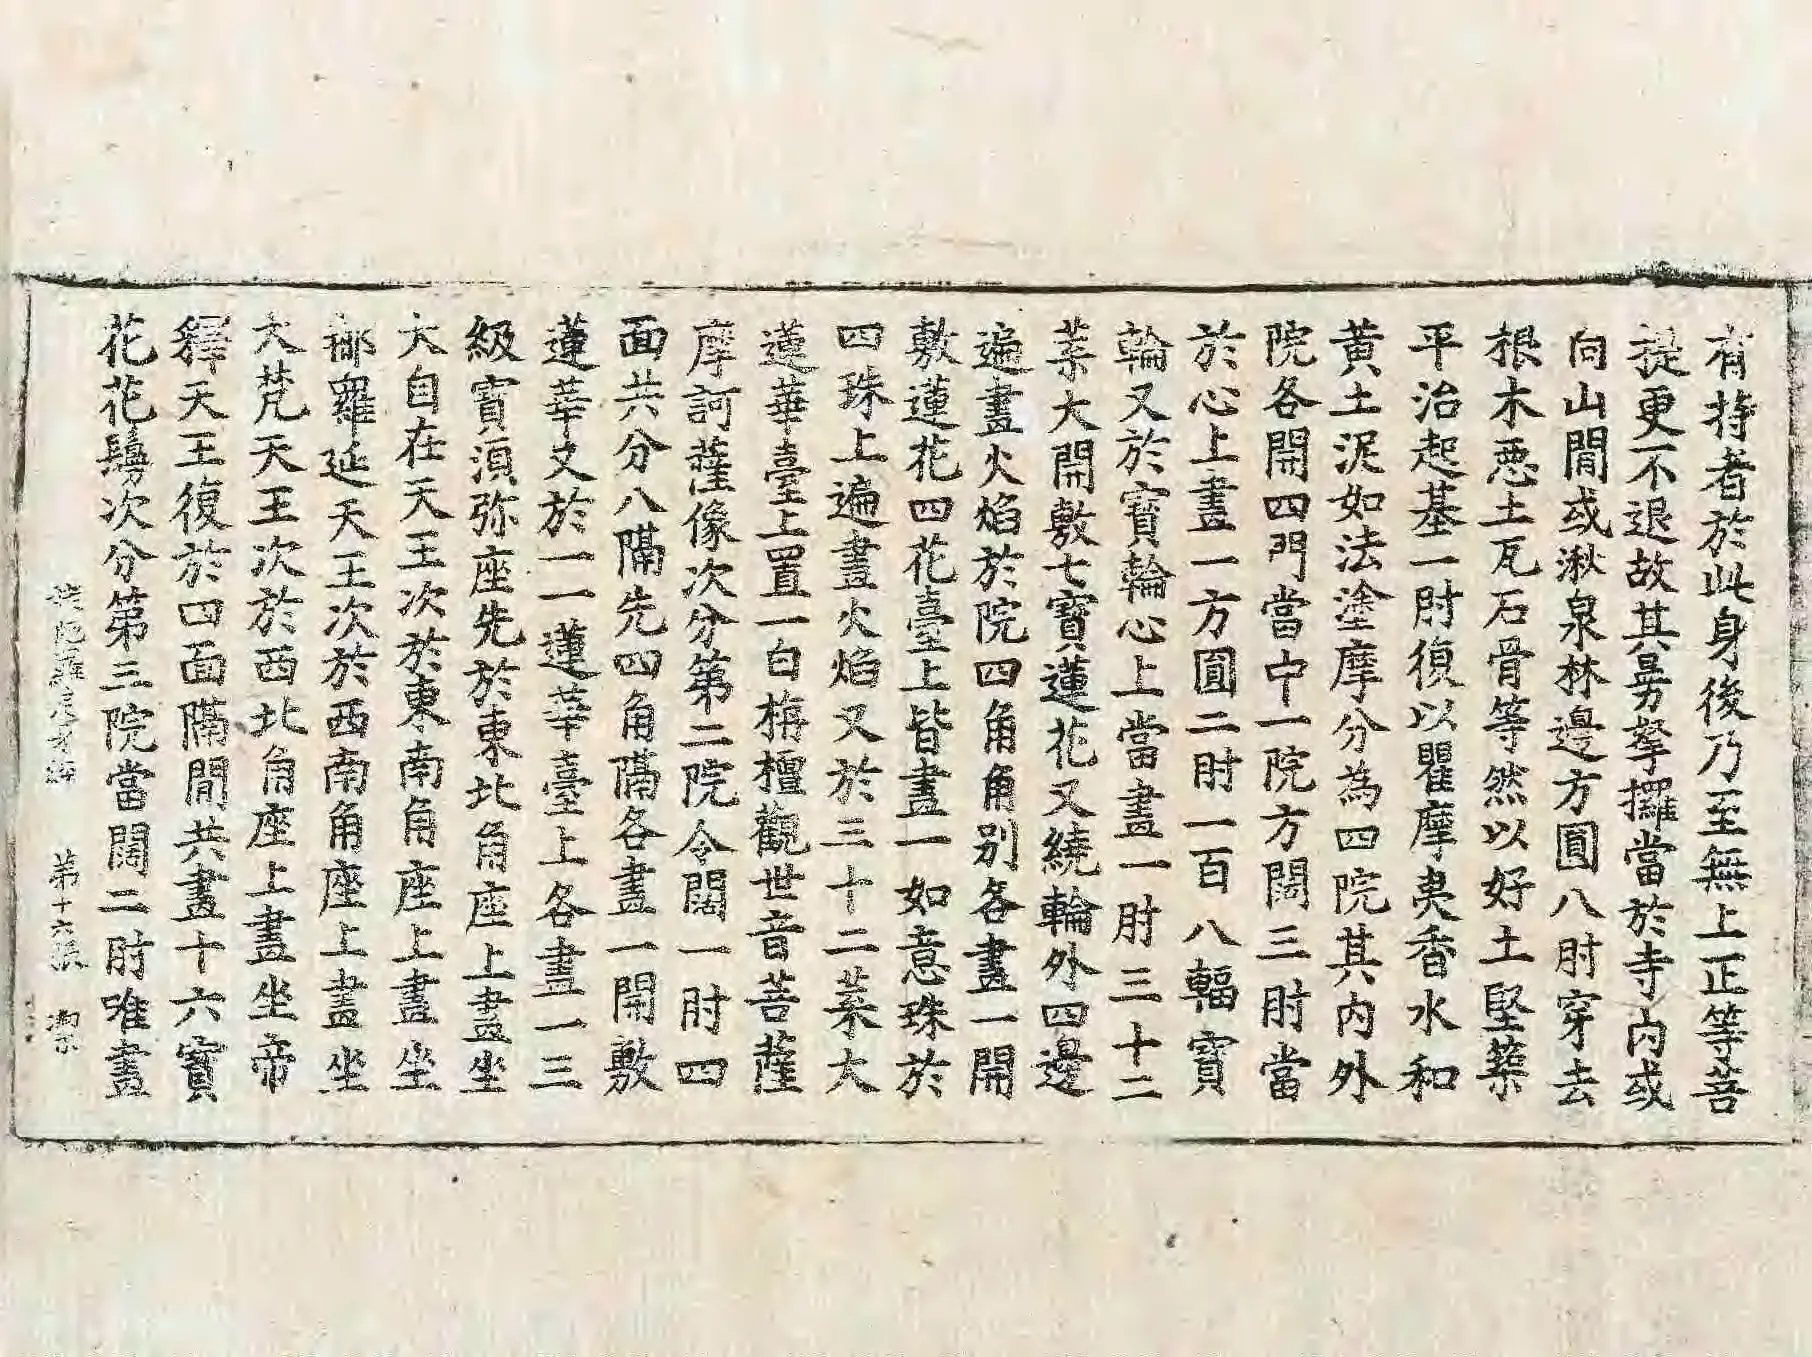 有持者於此身後乃至無上正等菩
提更不退故其曼拏攞當於寺內或
向山閒或湫泉林邊方圓八肘穿去
根木惡土瓦石骨等然以好土堅築
平治起基一肘復以瞿摩夷香水和
黃土泥如法塗摩分為四院其內外
院各開四門當中一院方闊三肘當
於心上畫一方圓二肘一百八輻寶
輪又於寶輪心上當畫一肘三十二
葉大開敷七寶蓮花又繞輪外四邊
遍畫火焰於院四角角別各畫一開
敷蓮花四花臺上皆畫一如意珠於
四珠上遍畫火焰又於三十二葉大
蓮華臺上置一白栴檀觀世音菩薩
摩訶薩像次分第二院令闊一肘四
面共分八隔先四角隔各畫一開敷
蓮華又於一一蓮華臺上各畫一三
級寶須弥座先於東北角座上畫坐
大自在天王次於東南角座上畫坐
那羅延天王次於西南角座上畫坐
大梵天王次於西北角座上畫坐帝
釋天王復於四面隔閒共畫十六寶
花花鬘次分第三院當闊二肘唯畫
第十六張